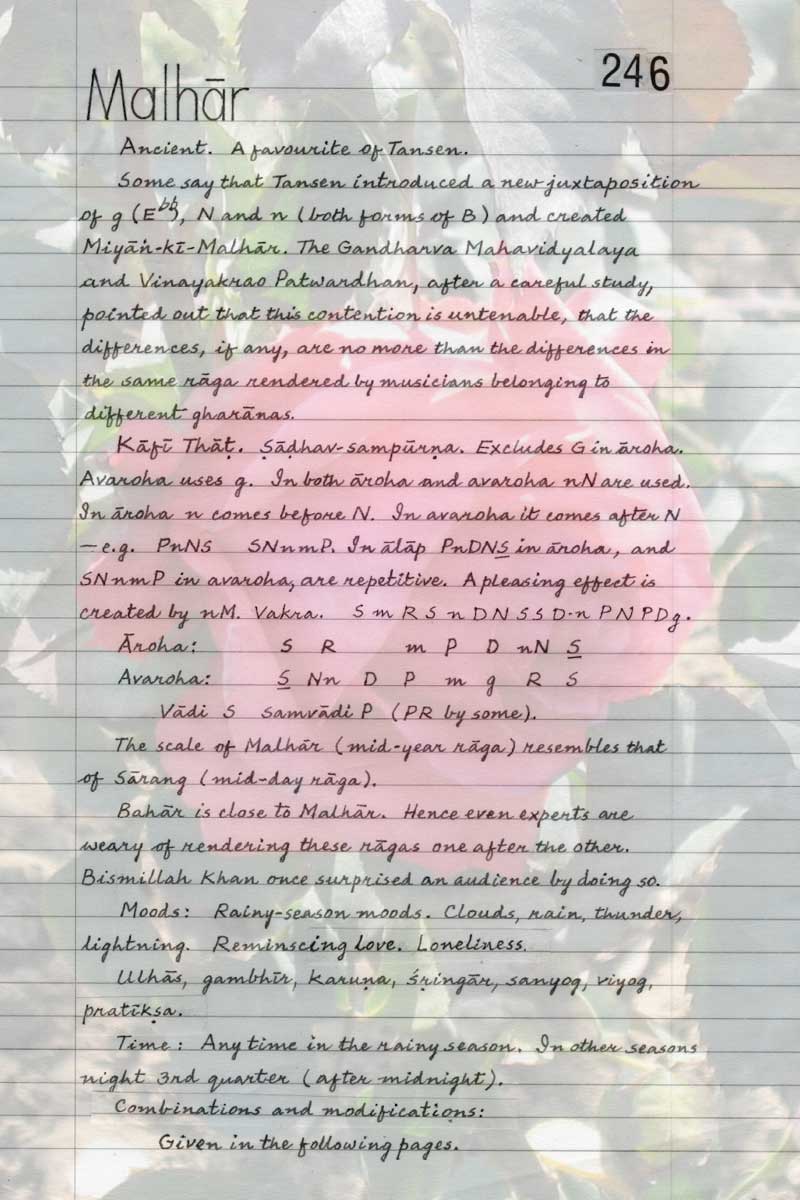 Malhār
246
Ancient. A favourite of Tansen.
Some say that Tansen introduced a new juxtaposition
of g (E♭♭), N and n (both forms of B) and created
Miyāṅ-kī-Malhār. The Gandharva Mahavidyalaya
and Vinayakrao Patwardhan, after a careful study,
pointed out that this contention is untenable, that the
differences, if any, are no more than the differences in
the same rāga rendered by musicians belonging to
different gharānas.
Kāfī Thāṭ. Ṣāḍhav-sampūrṇa. Excludes G in āroha.
Avaroha uses g. In both āroha and avaroha nN are used.
In āroha n comes before N. In avaroha it comes after N
– e.g. PnNS SNnmP. In ālāp PnDNS̲ in āroha, and
SNnmP in avaroha, are repetitive. A pleasing effect is
created by nM. Vakra. S m R S n D N S S D·n P N P D g.
Āroha: S R m P D nN S̲
Avaroha: S̲ Nn D P m g R S
Vādi S Samvādi P (PR by some).
The scale of Malhār (mid-year rāga) resembles that
of Sārang (mid-day rāga).
Bahār is close to Malhār. Hence even experts are
weary of rendering these rāgas one after the other.
Bismillah Khan once surprised an audience by doing so.
Moods: Rainy-season moods. Clouds, rain, thunder,
lightning. Reminscing love. Loneliness.
Ulhās, gambhīr, karuṇa, śṛingār, sanyog, viyog,
pratīkṣa.
Time: Any time in the rainy season. In other seasons
night 3rd quarter (after midnight).
Combinations and modifications:
Given in the following pages.